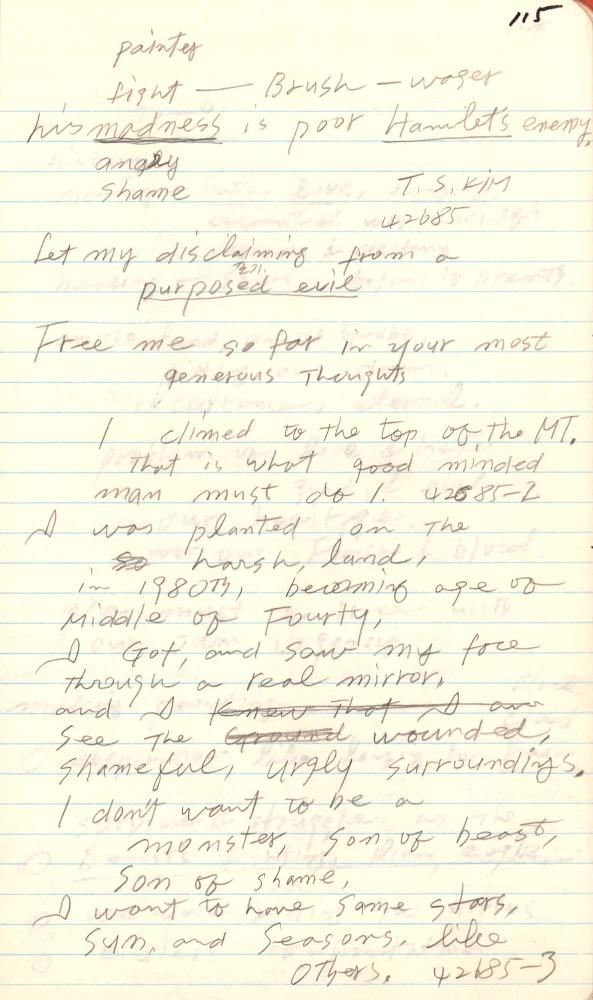 115
painter
fight — Brush — wager
his madness is poor Hamlet's enemy.
angry
shame T. S. KIM
42685
Let my disclaiming from a
purposed evil
Free me so far in your most
generous Thoughts
I climed to the top of the MT.
That is what good minded
man must do 1. 42685-2
I was planted on The
so harsh, land,
in 1980Th, becoming age of
Middle of Fourty,
I Got, and saw my face
Through a real mirror,
and I Knew That I am
See The Ground wounded,
shameful, urgly surroundings.
I don't want to be a
monster, son of beast,
Son of shame,
I want to have same stars,
Sun, and Seasons, like
OThers. 42685-3